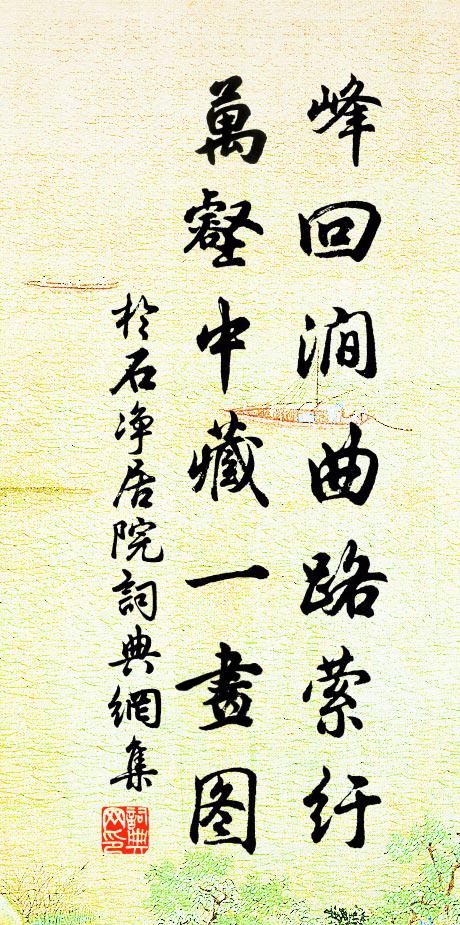 峰回澗曲路萦纡
萬壑中藏一畫图
於石净居院詞典網集
詞典网印